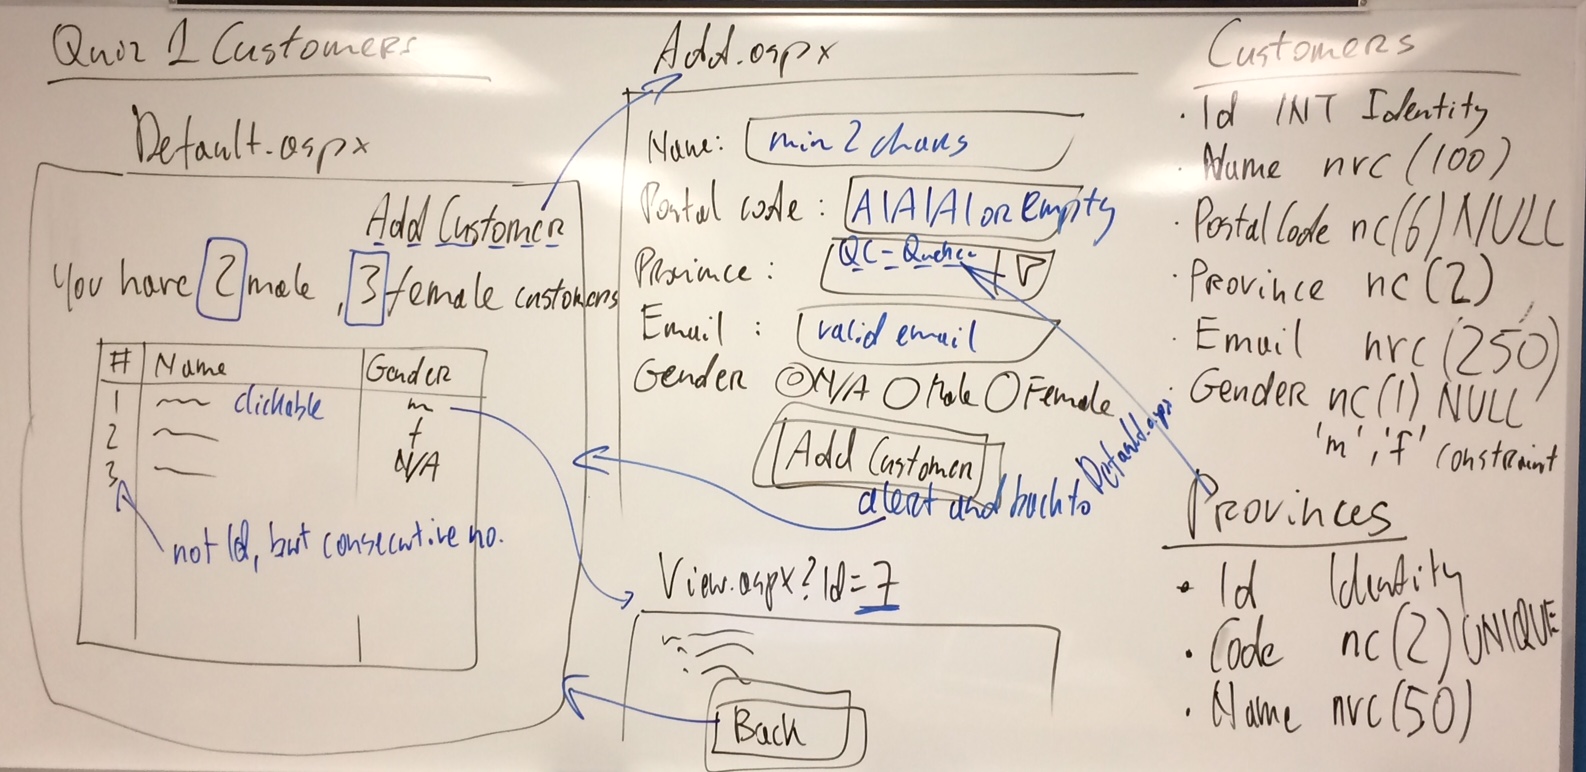 Quiz 1 Customers
Default.aspx
Add Customer
You have 2 male, 3 female customers
# Name Gender
1 clickable m
2 f
3 N/A
not Id, but consecutive no.
Add.aspx
Name: min 2 chars
Postal code: A1A1A1 or empty
Province: QC - Quebec
Email: valid email
Gender N/A Male Female
Add Customer
alert and back to Default.aspx
View.aspx?Id=7
Back
Customers
· Id INT Identity
· Name nvc(100)
· PostalCode nc(6) NULL
· Province nc(2)
· Email nvc(250)
· Gender nc(1) NULL
'm', 'f' constraint
Provinces
· Id Identity
· Code nc(2) UNIQUE
· Name nvc(50)